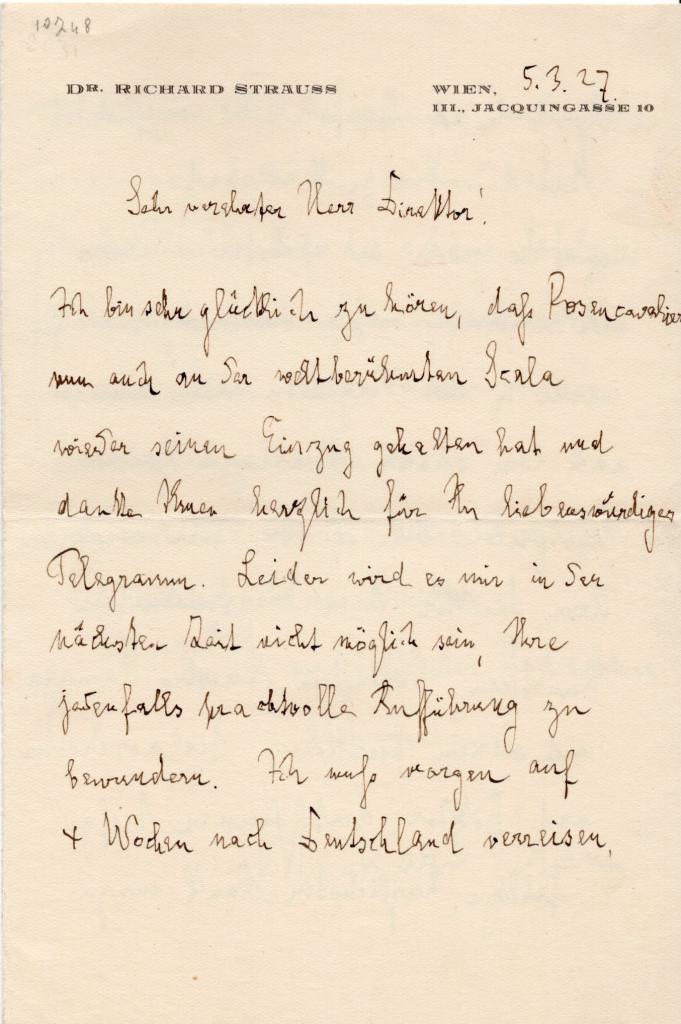 10248
DR. RICHARD STRAUSS
WIEN, 5.3.27.
III., JACQUINGASSE 10
Sehr verehrter Herr Direktor!
Ich bin sehr glücklich zu hören, daß Rosencavalier
nun auch an der weltberühmten Scala
wieder seinen Einzug gehalten hat und
danke Ihnen herzlich für Ihr liebenswürdiges
Telegramm. Leider wird es mir in der
nächsten Zeit nicht möglich sein, Ihre
jedenfalls prachtvolle Aufführung zu
bewundern. Ich muß morgen auf
4 Wochen nach Deutschland verreisen,